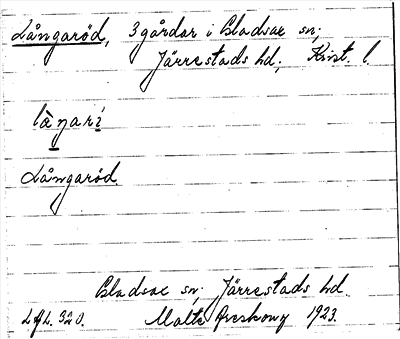 Långaröd, 3 gårdar i Bladsax sn;
Järrestads hd; Krist. l.
làŋarí
Långaröd.
Bladsax sn; Järrestads hd.
L.f.L. 320. Malte Areskoug 1923.